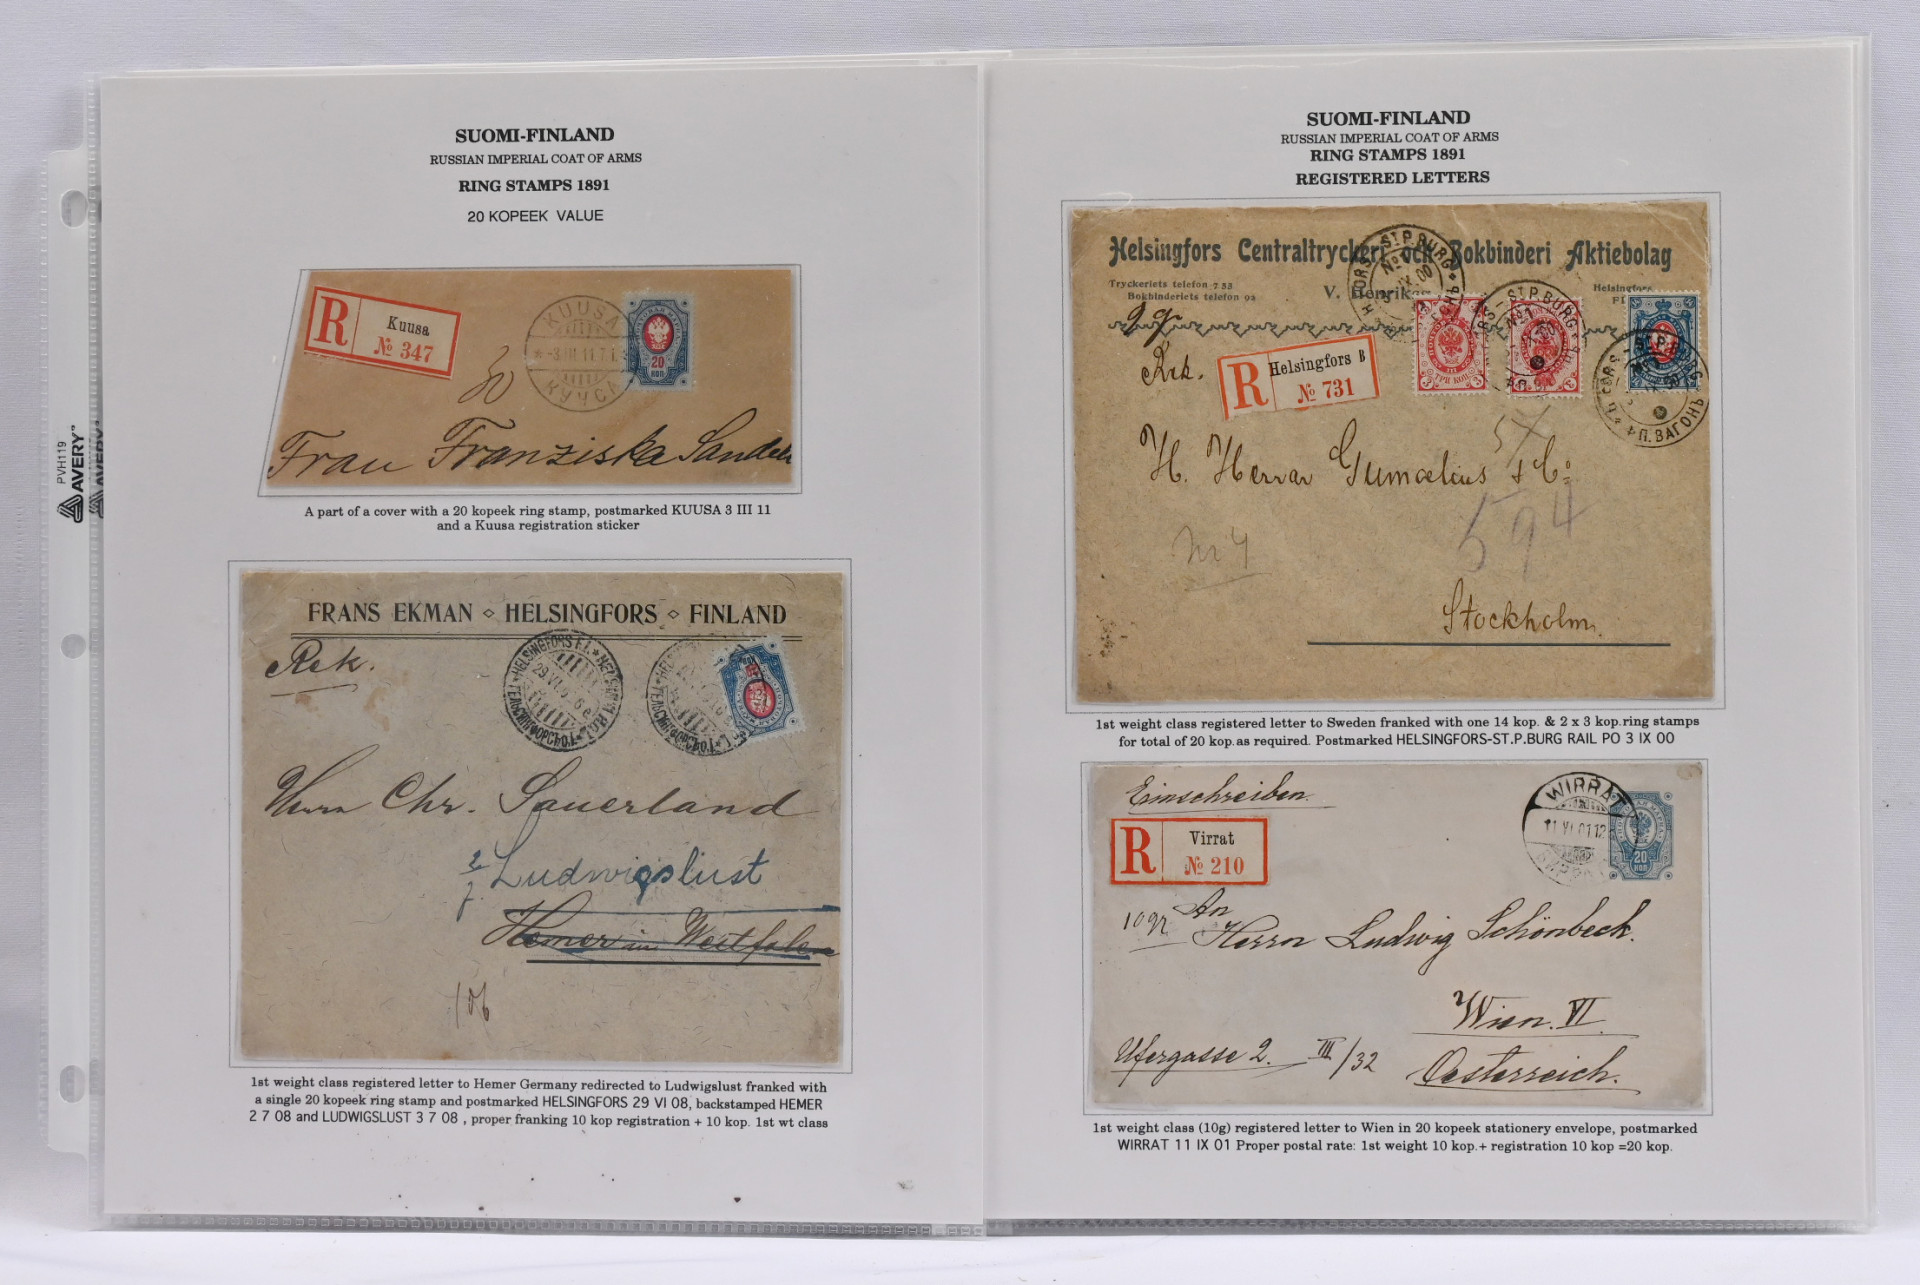 SUOMI-FINLAND
RUSSIAN IMPERIAL COAT OF ARMS
RING STAMPS 1891
20 KOPEEK VALUE
R
Kuusa
№ 347
KUUSA
-3.III.11.7 I.
КУУСА
20
КОП
Frau Franziska Sandell
A part of a cover with a 20 kopeek ring stamp, postmarked KUUSA 3 III 11
and a Kuusa registration sticker
PVH119
AVERY™
FRANS EKMAN ◇ HELSINGFORS ◇ FINLAND
Rek.
HELSINGFORS
29.VI.
Herrn Chr. Sauerland
Ludwigslust
Hemer in Westfalen
106
1st weight class registered letter to Hemer Germany redirected to Ludwigslust franked with
a single 20 kopeek ring stamp and postmarked HELSINGFORS 29 VI 08, backstamped HEMER
2 7 08 and LUDWIGSLUST 3 7 08 , proper franking 10 kop registration + 10 kop. 1st wt class
SUOMI-FINLAND
RUSSIAN IMPERIAL COAT OF ARMS
RING STAMPS 1891
REGISTERED LETTERS
Helsingfors Centraltryckeri och Bokbinderi Aktiebolag
Tryckeriets telefon 733
Bokbinderiets telefon 92
V. Henriks
Helsingfors
9 gr
Rek.
R
Helsingfors B
№ 731
ST.P.BURG
П.ВАГОНЪ
ТРИ КОП
H. Herrar Gumælius & Co:
57
594
Nr 4
Stockholm.
1st weight class registered letter to Sweden franked with one 14 kop. & 2 x 3 kop.ring stamps
for total of 20 kop.as required. Postmarked HELSINGFORS-ST.P.BURG RAIL PO 3 IX 00
Einschreiben.
R
Virrat
№ 210
WIRRAT
11 VI 01.12
20
КОП
10gr
An
Herrn Ludwig Schönbeck.
Wien. VI.
Ufergasse 2. III/32
Oesterreich.
1st weight class (10g) registered letter to Wien in 20 kopeek stationery envelope, postmarked
WIRRAT 11 IX 01 Proper postal rate: 1st weight 10 kop.+ registration 10 kop =20 kop.